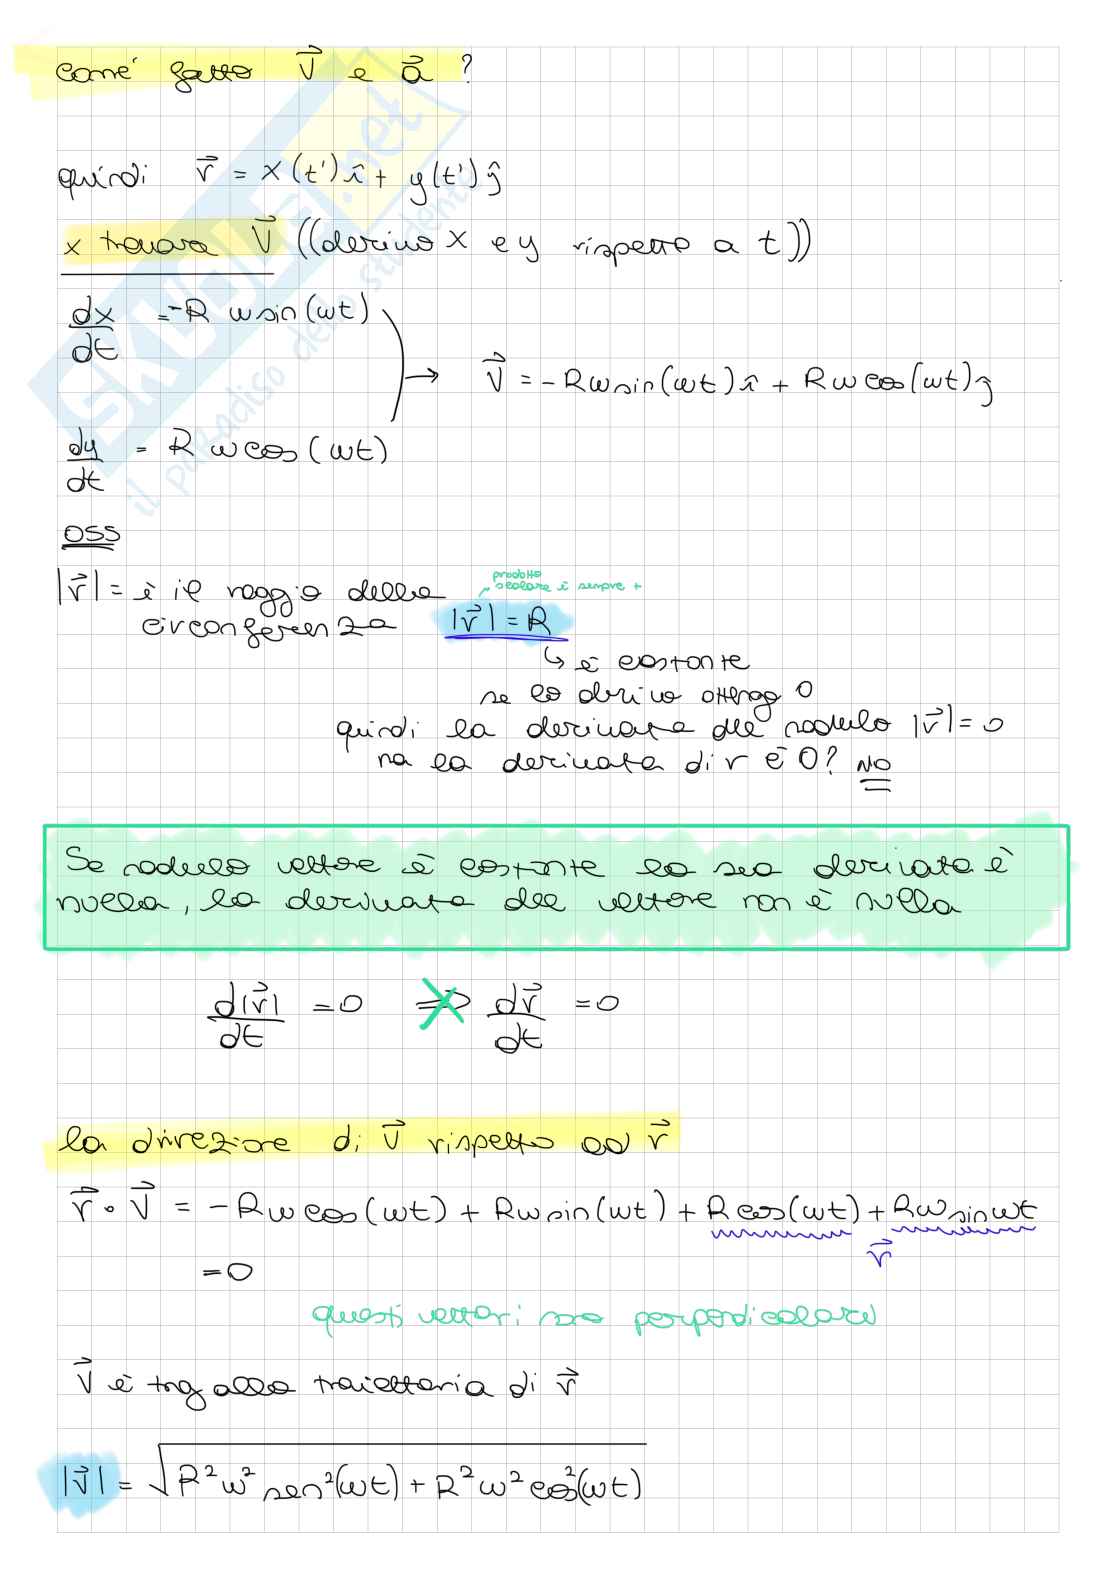 com'è fatto v⃗ e a⃗ ?
quindi r⃗ = x(t')î + y(t')ĵ
x trovare v⃗ ((derivo x e y rispetto a t))
dx/dt = -Rωsin(ωt)
→ v⃗ = -Rωsin(ωt)î + Rωcos(ωt)ĵ
dy/dt = Rωcos(ωt)
OSS
|r⃗| = è il raggio della
circonferenza |r⃗| = R
prodotto
scalare è sempre +
↳ è costante
se lo derivo otteng 0
quindi la derivata del modulo |r⃗| = 0
ma la derivata di r è 0? NO
Se modulo vettore è costante la sua derivata è
nulla, la derivata del vettore non è nulla
d|r⃗|/dt = 0 ⇏ dr⃗/dt = 0
la direzione di v⃗ rispetto ad r⃗
r⃗ · v⃗ = -Rωcos(ωt) + Rωsin(ωt) + Rcos(ωt) + Rωsinωt
r⃗
= 0
questi vettori sono perpendicolari
v⃗ è tng alla traiettoria di r⃗
|v⃗| = √(R²ω²sen²(ωt) + R²ω²cos²(ωt))
SKUOLA.net
il paradiso dello studente